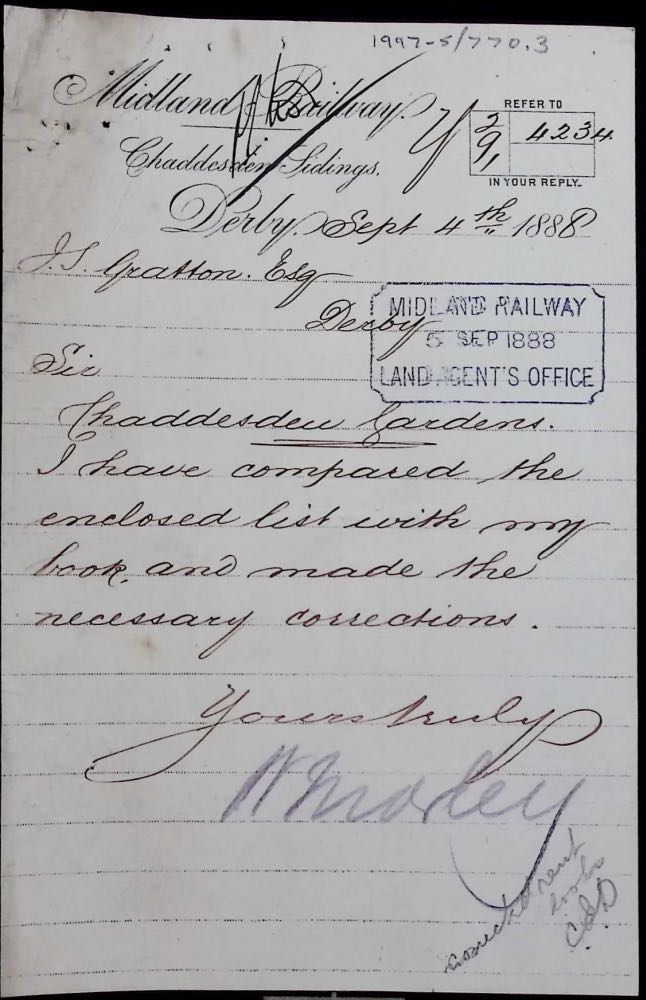 1997-5/770.3
Midland Railway.
REFER TO
2/9, 4234
IN YOUR REPLY.
Chaddesden Sidings,
Derby, Sept 4th 1888
J.S. Gratton. Esq
Derby
MIDLAND RAILWAY
5 SEP 1888
LAND AGENT'S OFFICE
Sir
Chaddesden Gardens.
I have compared the
enclosed list with my
book, and made the
necessary corrections.
Yours truly
rent
books